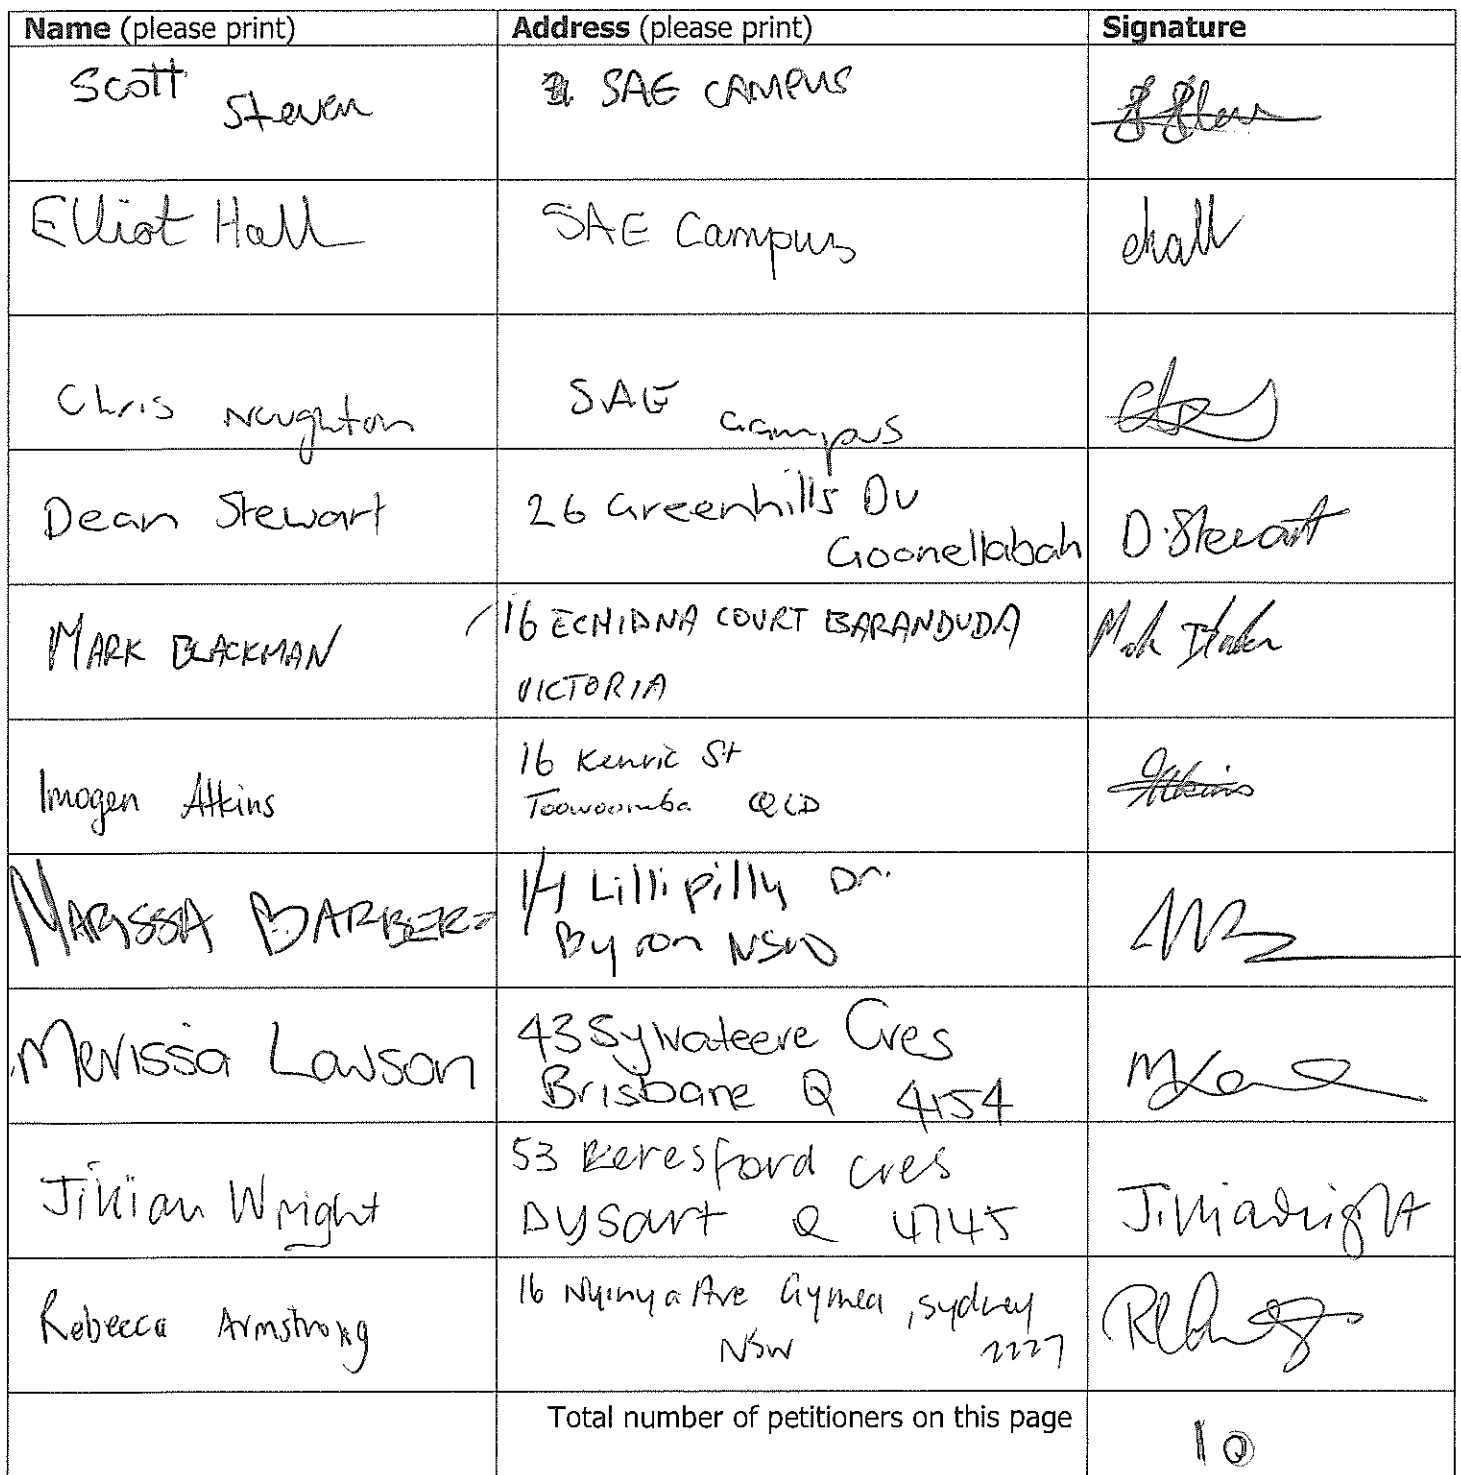 Name (please print) Address (please print) Signature
Scott Steven SAE CAMPUS
Elliot Hall SAE Campus ehall
Chris Naughton SAE campus
Dean Stewart 26 Greenhills Dv
Goonellabah D. Stewart
MARK BLACKMAN 16 ECHIDNA COURT BARANDUDA
VICTORIA
Imogen Atkins 16 Kenric St
Toowoomba QLD Atkins
MARISSA BARBER 1/4 Lillipilly Dr.
Byron NSW
Merissa Lawson 43 Sylvateere Cres
Brisbane Q 4154
Jillian Wright 53 Beresford cres
Dysart Q 4745
Rebecca Armstrong 16 Nyinya Ave Gymea, sydney
NSW 2227
Total number of petitioners on this page 10